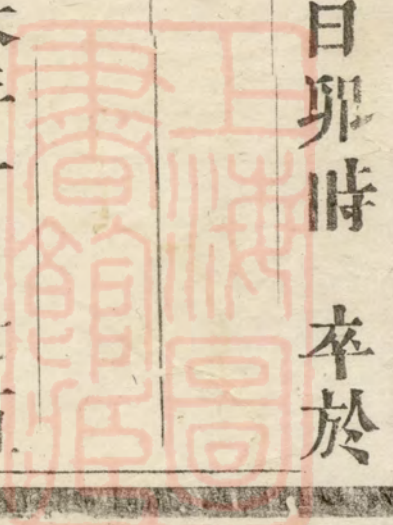 日卯時　卒於
上海圖
書館藏